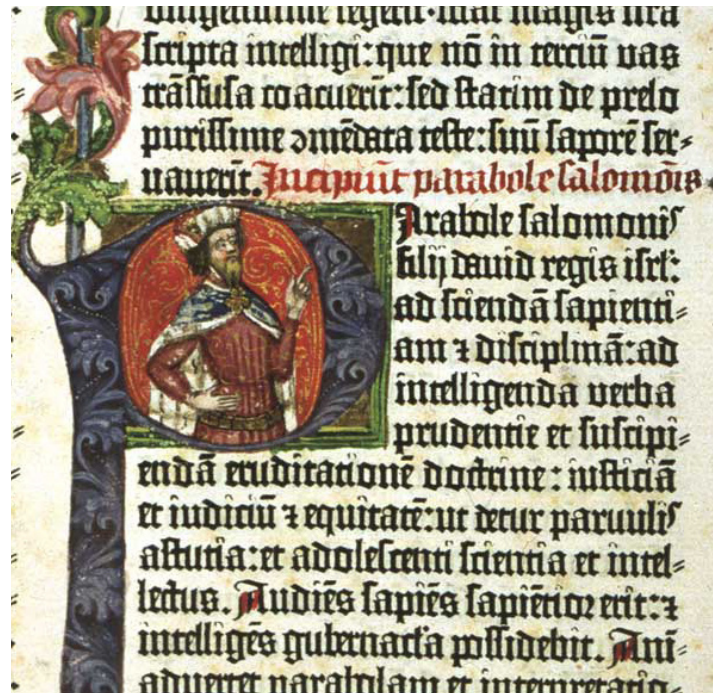 legerit·sciat magis nr̄a
scripta intelligi: que nō in terciū vas
trāsfusa coacuerīt: sed statim de prelo
purissime ↄmēdata teste: suū saporē ser⸗
uauerīt. Incipiūt parabole salomōis
Parabole salomonis
filij dauid regis isrl:
ad sciendā sapienti⸗
am ⁊ disciplinā: ad
intelligenda verba
prudentie et suscipi⸗
endā eruditationē doctrine: iusticiā
et iudiciū ⁊ equitatē: ut detur paruulis
astutia: et adolescenti scientia et intel⸗
lectus. Audiēs sapiēs sapiētior erit: ⁊
intelligēs gubernacl'a possidebit. Ani⸗
aduertet parabolam et interpretatio⸗